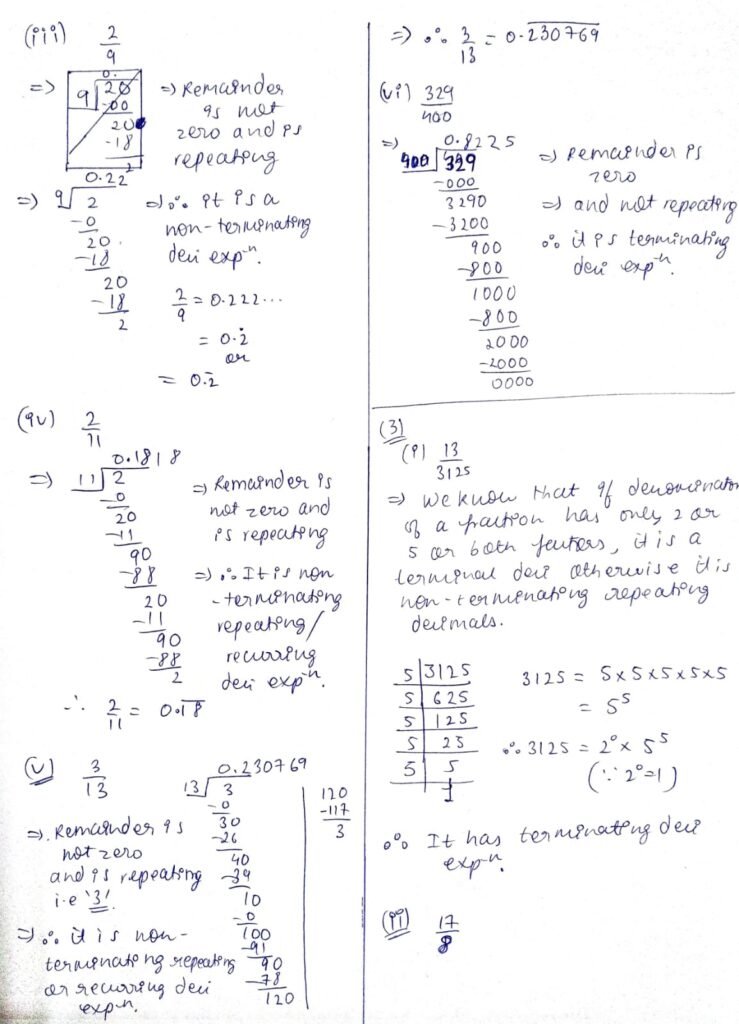 (iii) 2/9
0.
9 20
-00
20
-18
=> Remainder
is not
zero and is
repeating
0.22²
=> 9 2
-0
20
-18
20
-18
2
=> ∴ it is a
non-terminating
deci expⁿ.
2/9 = 0.222...
= 0.2̇
or
= 0.2̅
(iv) 2/11
0.1818
=> 11 2
-0
20
-11
90
-88
20
-11
90
-88
2
=> Remainder is
not zero and
is repeating
=> ∴ It is non
-terminating
repeating/
recurring
deci expⁿ.
∴ 2/11 = 0.1̅8̅
(v) 3/13
0.230769
13 3
-0
30
-26
40
-39
10
-0
100
-91
90
-78
120
120
-117
3
=> Remainder is
not zero
and is repeating
i.e '3'.
=> ∴ it is non-
terminating repeating
or recurring deci
expⁿ.
=> ∴ 3/13 = 0.2̅3̅0̅7̅6̅9̅
(vi) 329/400
=> 0.8225
400 329
-000
3290
-3200
900
-800
1000
-800
2000
-2000
0000
=> Remainder is
zero
=> and not repeating
∴ it is terminating
deci expⁿ.
(3)
(i) 13/3125
=> We know that if denominator
of a fraction has only 2 or
5 or both factors, it is a
terminal deci otherwise it is
non-terminating repeating
decimals.
5 3125
5 625
5 125
5 25
5 5
1
3125 = 5x5x5x5x5
= 5⁵
∴ 3125 = 2⁰ x 5⁵
(∵ 2⁰=1)
∴ It has terminating deci
expⁿ.
(ii) 17/8